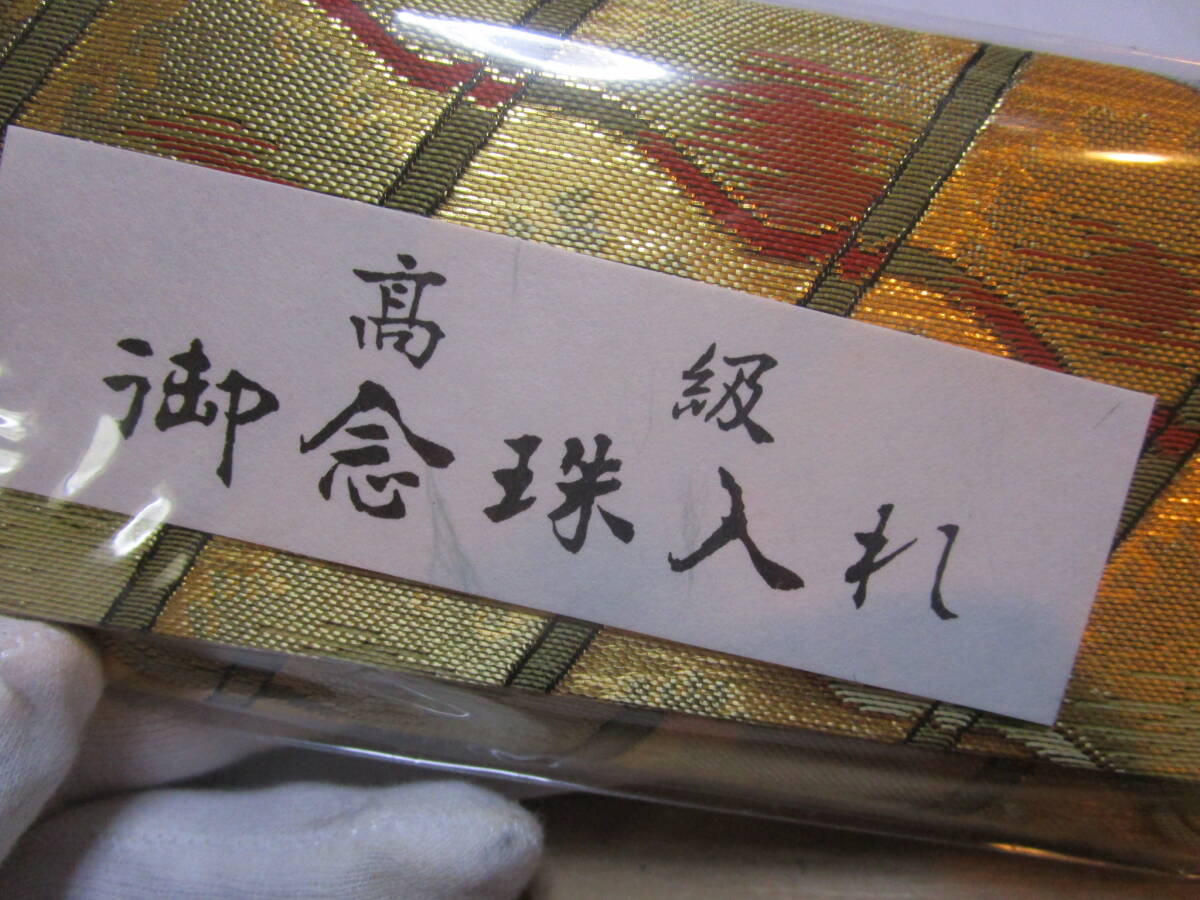 高級
御念珠入れ